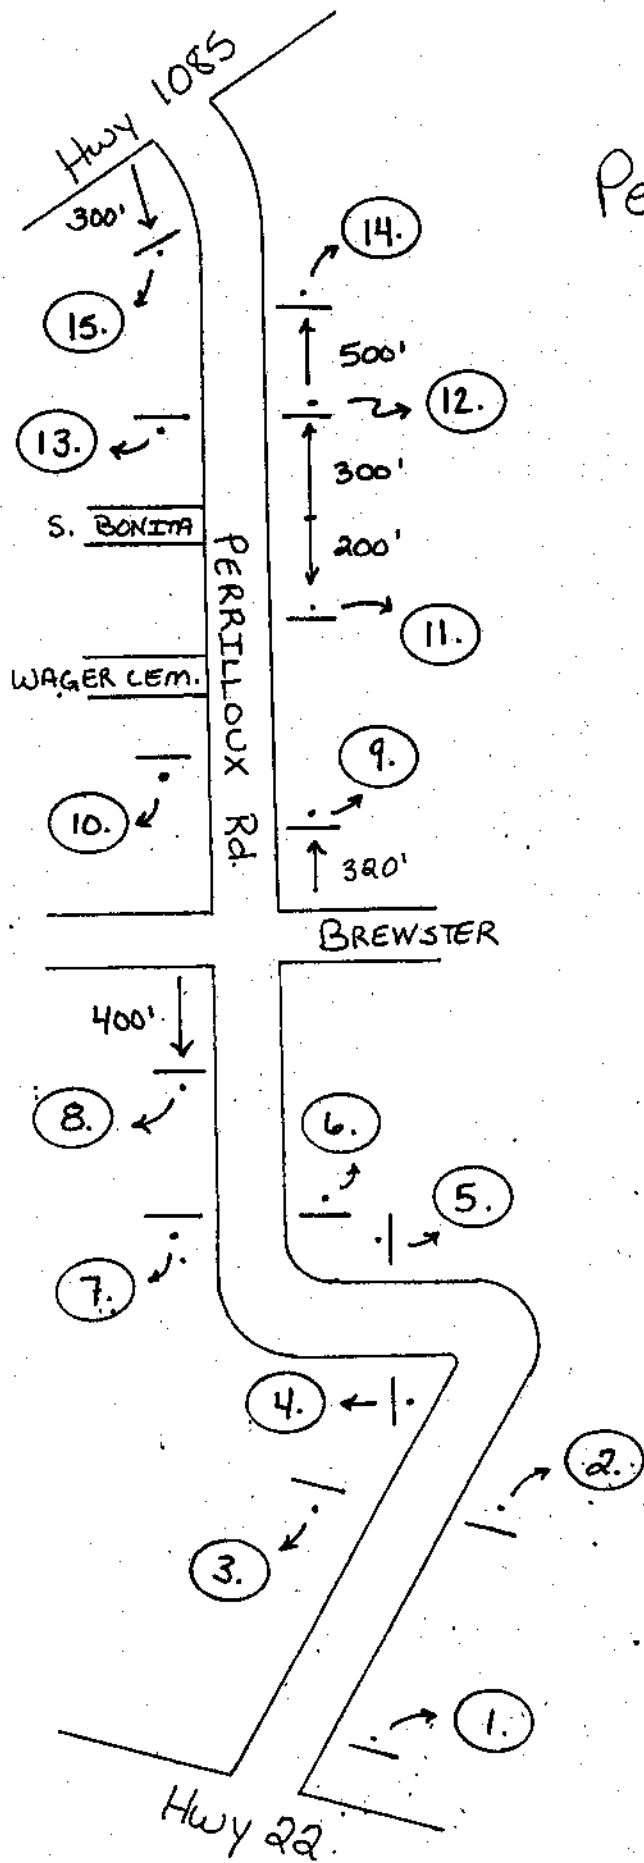 Hwy 1085
Pe
300'
14.
15.
500'
12.
13.
300'
S. BONITA
200'
PERRILLOUX Rd.
11.
WAGER CEM.
9.
10.
320'
BREWSTER
400'
8.
6.
5.
7.
4.
2.
3.
1.
Hwy 22.